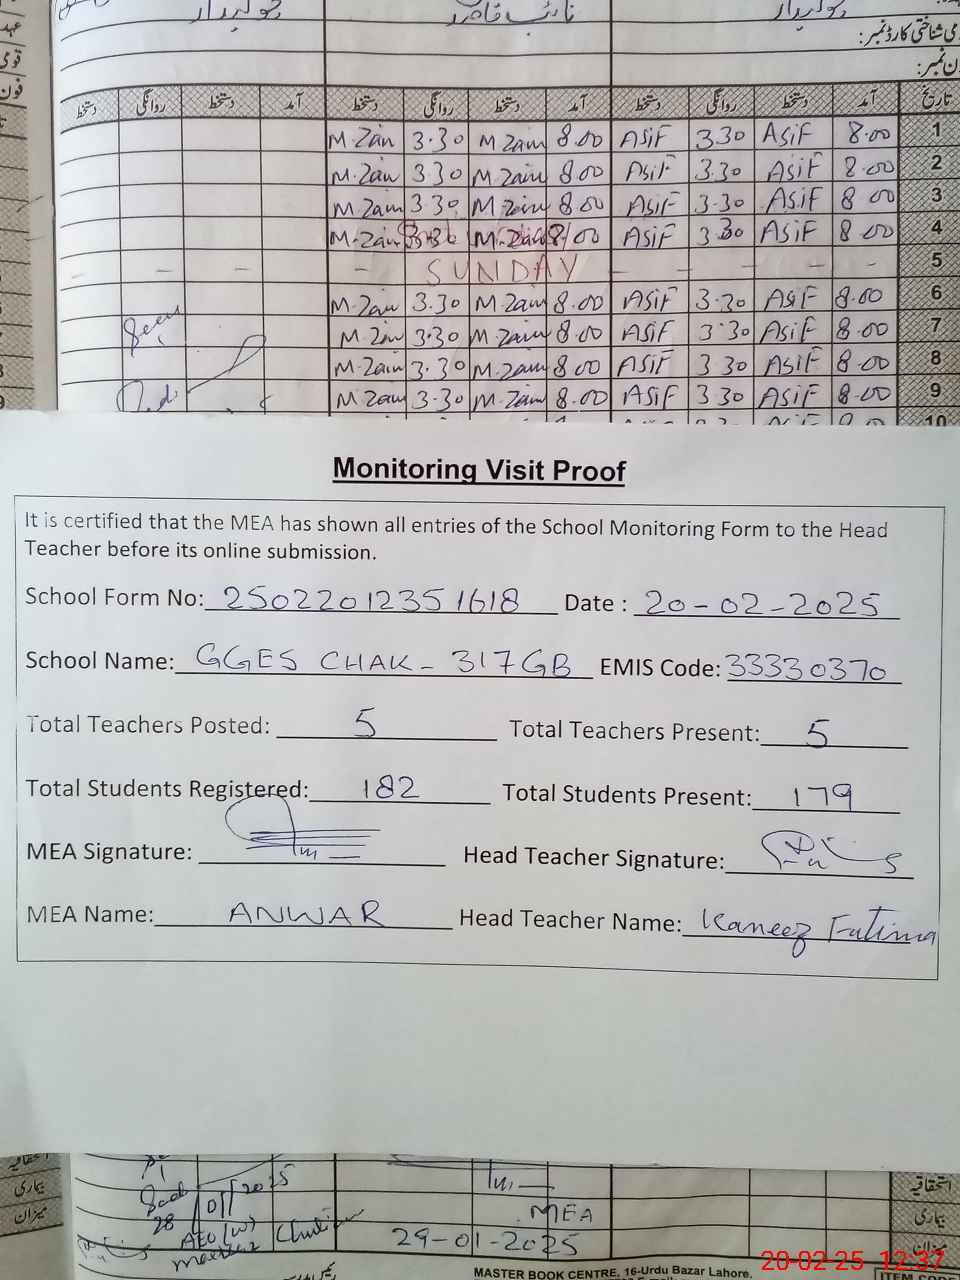 می شناختی کارڈ نمبر:
ن نمبر:
تاریخ آمد دستخط روانگی دستخط آمد دستخط روانگی دستخط آمد دستخط روانگی دستخط
M.Zain 3.30 M Zain 8.00 ASiF 3.30 ASiF 8.00 1
M.Zain 3.30 M.Zain 8.00 ASiF 3.30 ASiF 8.00 2
M.Zain 3.30 M.Zain 8.00 ASiF 3.30 ASiF 8.00 3
M.Zain 3.30 M.Zain 8.00 ASiF 3.30 ASiF 8.00 4
- - - - SUNDAY - - - - 5
M.Zain 3.30 M.Zain 8.00 ASiF 3.30 ASiF 8.00 6
M.Zain 3.30 M.Zain 8.00 ASiF 3.30 ASiF 8.00 7
M.Zain 3.30 M.Zain 8.00 ASiF 3.30 ASiF 8.00 8
M.Zain 3.30 M.Zain 8.00 ASiF 3.30 ASiF 8.00 9
10
Monitoring Visit Proof
It is certified that the MEA has shown all entries of the School Monitoring Form to the Head
Teacher before its online submission.
School Form No: 25022012351618 Date : 20-02-2025
School Name: GGES CHAK-317GB EMIS Code: 33330370
Total Teachers Posted: 5 Total Teachers Present: 5
Total Students Registered: 182 Total Students Present: 179
MEA Signature: Head Teacher Signature:
MEA Name: ANWAR Head Teacher Name: Kaneez Fatima
اتفاقیہ
بیماری
میزان
28/01/2025
AEO (W)
MEA
29-01-2025
MASTER BOOK CENTRE, 16-Urdu Bazar Lahore.
20-02-25 12:37